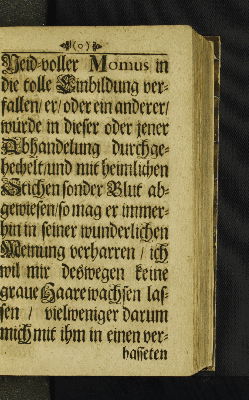 (o)
Neid-voller Momus in
die tolle Einbildung ver-
fallen / er / oder ein anderer /
würde in dieser oder jener
Abhandelung durchge-
hechelt / und mit heimlichen
Stichen sonder Blut ab-
gewiesen / so mag er immer-
hin in seiner wunderlichen
Meinung verharren / ich
wil mir deswegen keine
graue Haare wachsen las-
sen / vielweniger darum
mich mit ihm in einen ver-
hasseten